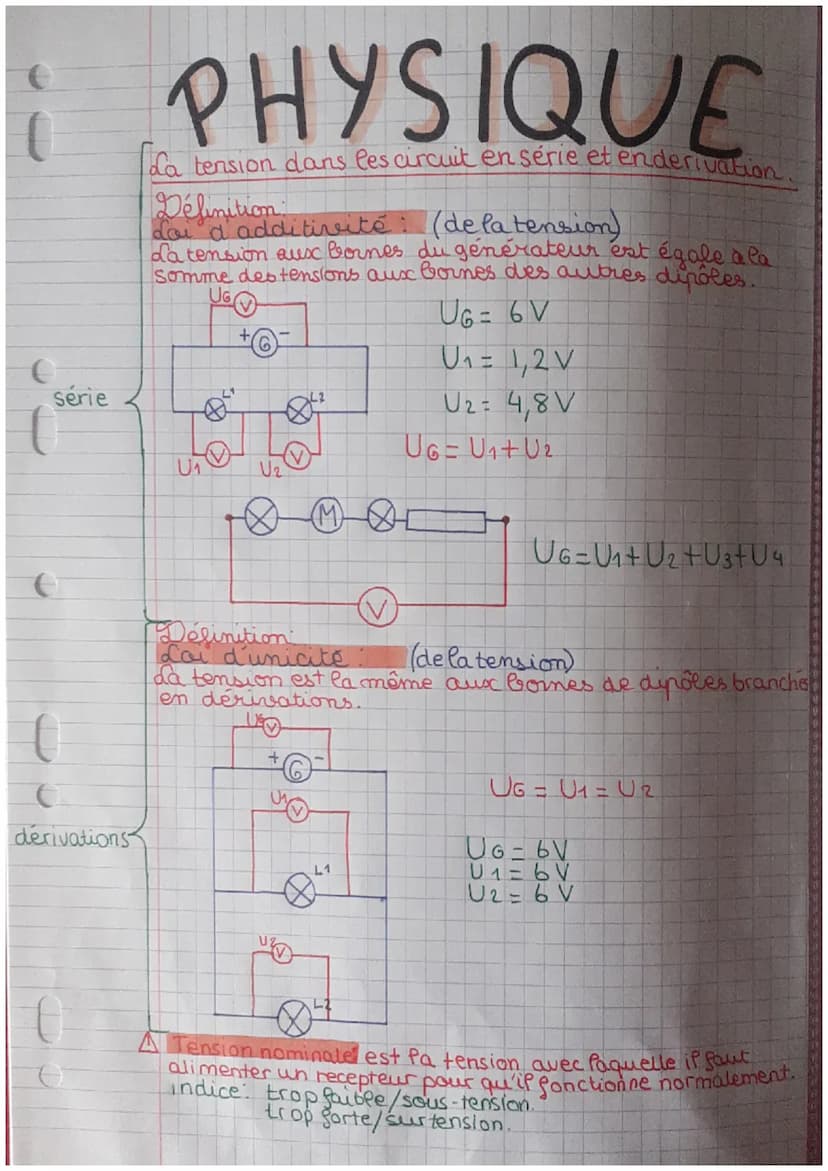 PHYSIQUE
La tension dans les circuit en série et en derivation.
Définition:
Loi d'additivité : (de la tension)
La tension aux bornes du générateur est égale a la
somme des tensions aux bornes des autres dipôles.
UG
V
+ G -
L1 L2
V V
U1 U2
UG = 6V
U1 = 1,2V
U2 = 4,8V
UG = U1+U2
série
M
V
UG=U1+U2+U3+U4
Définition:
Loi d'unicité : (de la tension)
La tension est la même aux bornes de dipôles branché
en dérivations.
UG V
+ G -
U1 V
L1
U2 V
L2
UG = U1 = U2
UG = 6V
U1 = 6V
U2 = 6V
dérivations
⚠ Tension nominale est la tension avec laquelle il faut
alimenter un recepteur pour qu'il fonctionne normalement.
indice: trop faible/sous-tension.
trop forte/surtension.